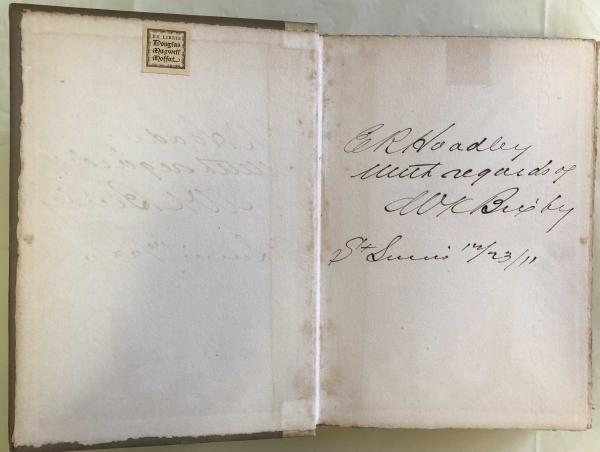 EX LIBRIS
Douglas
Maxwell
Moffat
E R Hoadley
With regards of
W K Bixby
St Louis 12/23/11